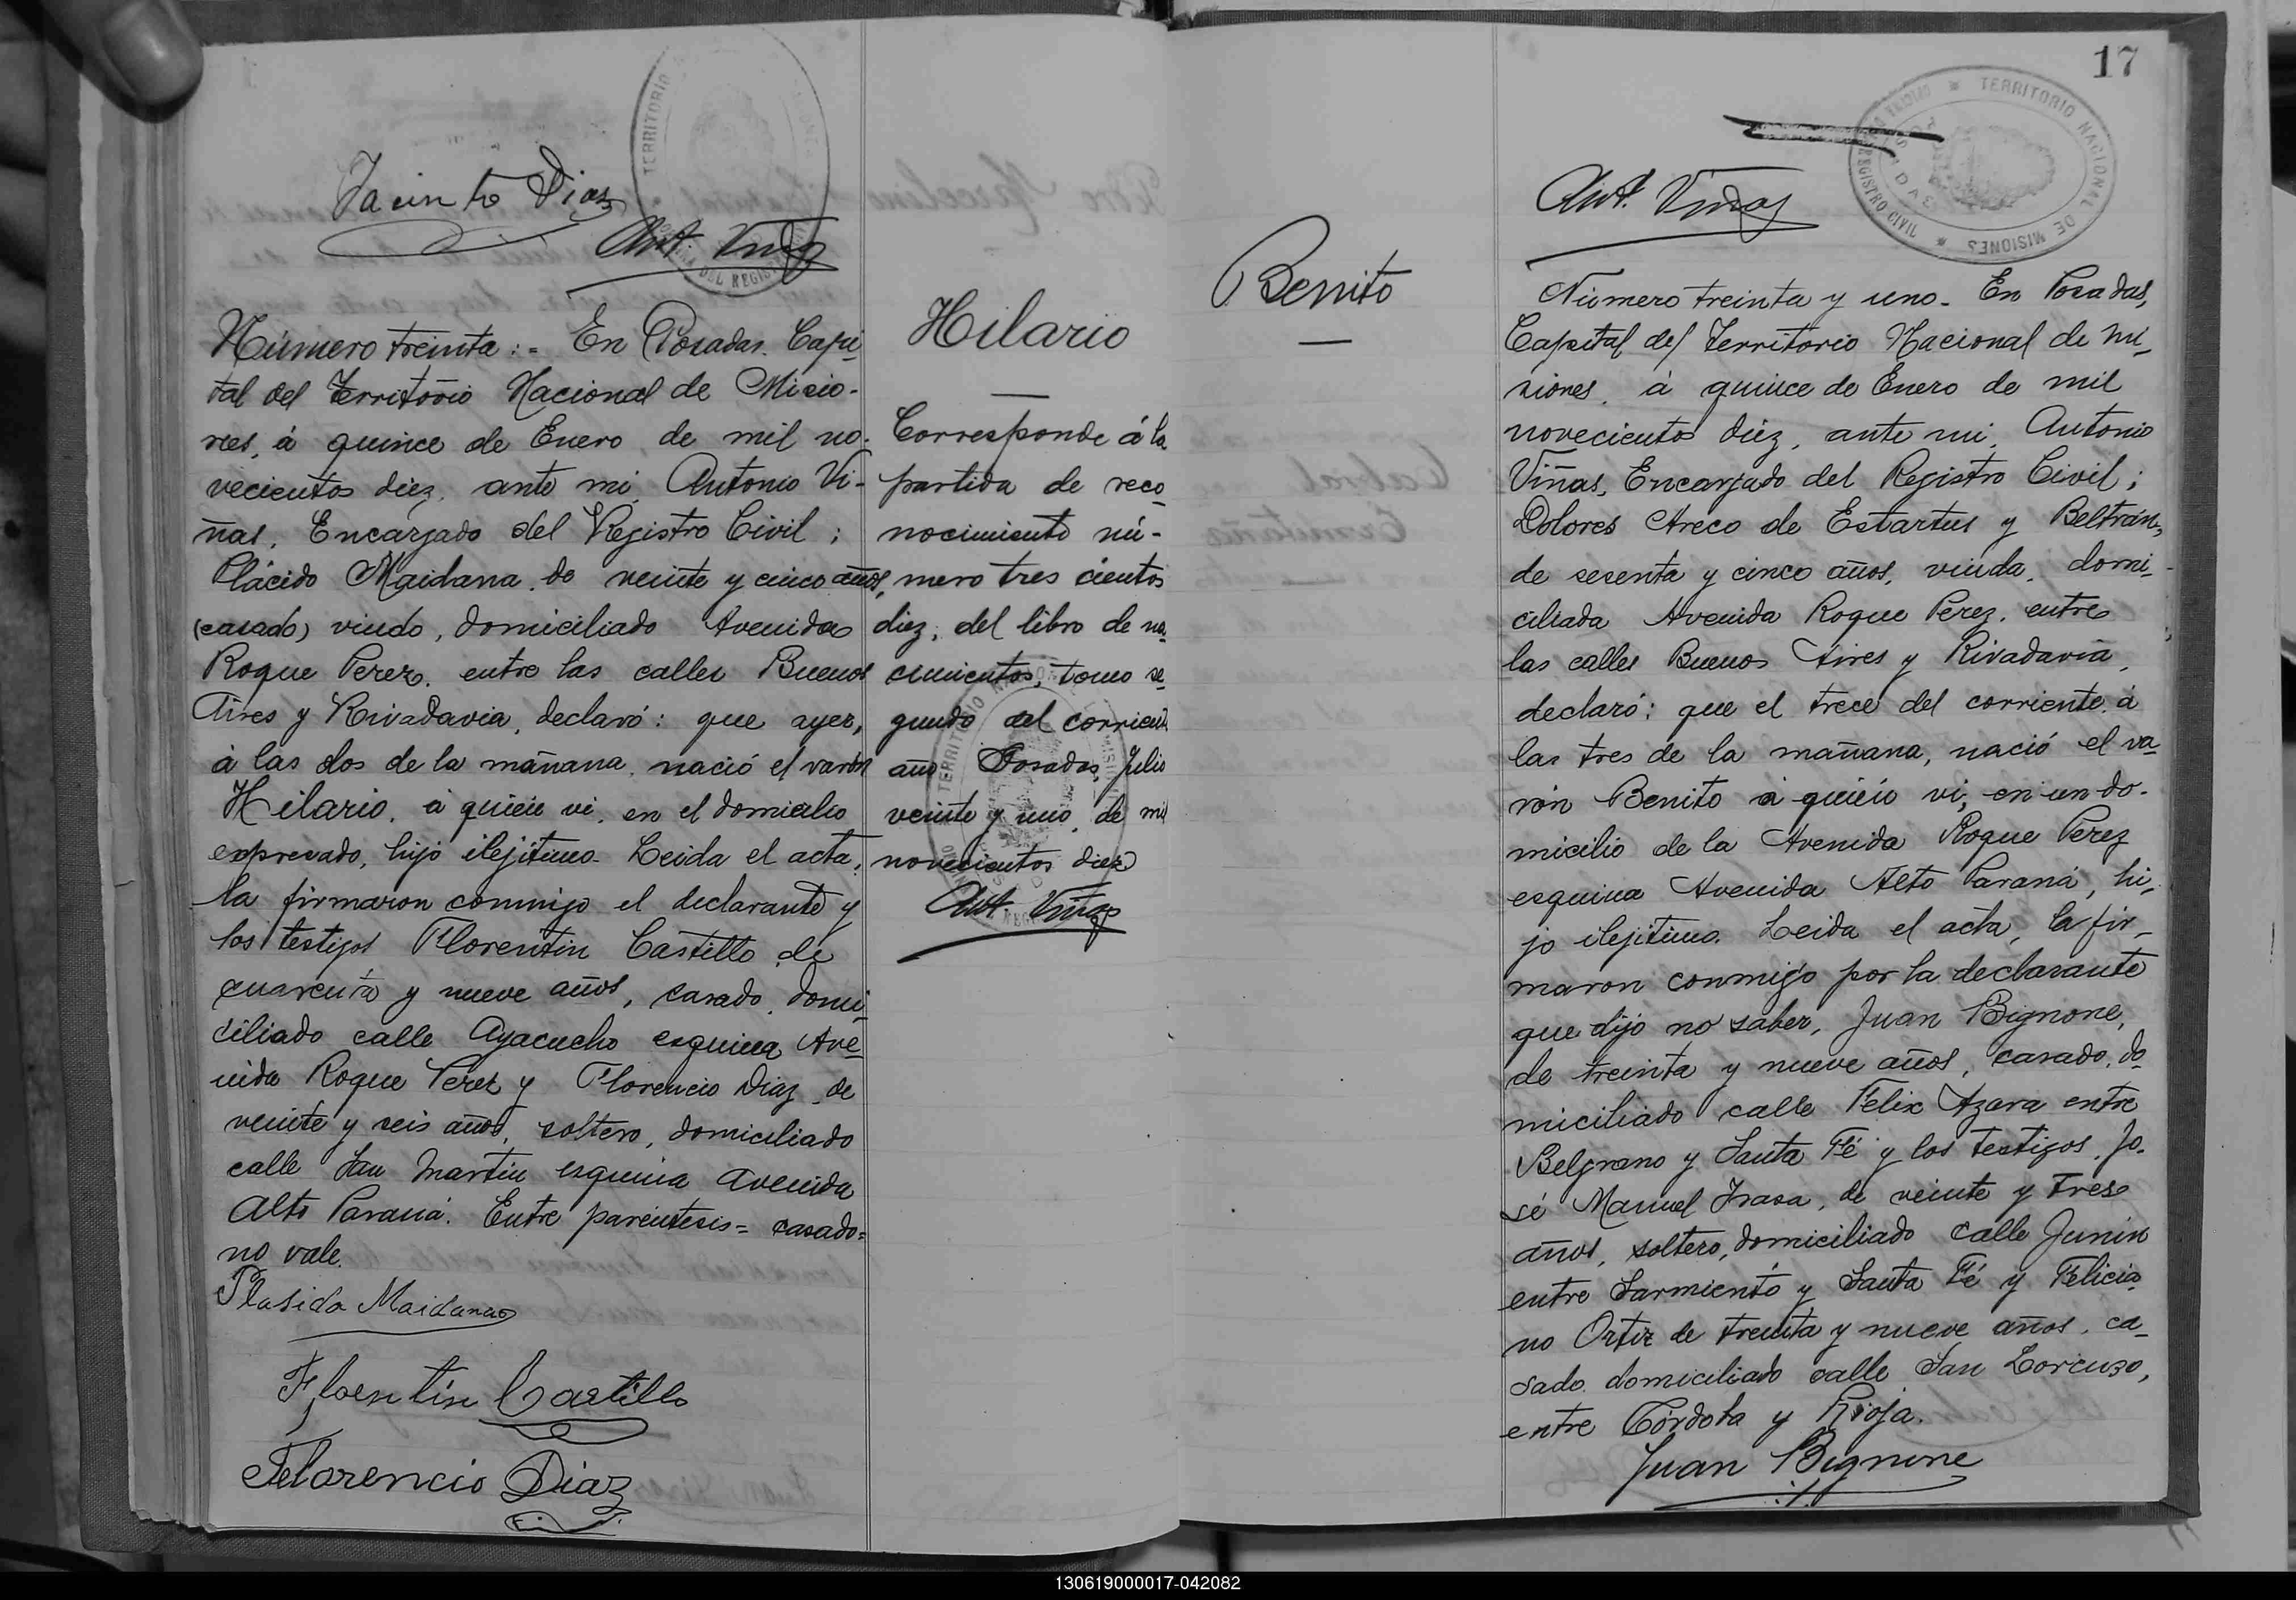 Jacinto Dias
Ant. Viñas
Número treinta:- En Posadas. Capi-
tal del Territorio Nacional de Misio-
nes, á quince de Enero de mil no-
vecientos diez, ante mi, Antonio Vi-
ñas, Encargado del Registro Civil;
Plácido Maidana, de veinte y cinco años,
(casado) viudo, domiciliado Avenida
Roque Perez, entre las calles Buenos
Aires y Rivadavia, declaró: que ayer,
á las dos de la mañana, nació el varón
Hilario, á quien vi, en el domicilio
expresado, hijo ilejitimo. Leida el acta,
la firmaron conmigo el declarante y
los testigos Florentin Castillo, de
cuarenta y nueve años, casado, domi-
ciliado calle Ayacucho esquina Ave-
nida Roque Perez y Florencio Diaz, de
veinte y seis años, soltero, domiciliado
calle San Martin esquina Avenida
Alto Paraná. Entre parentesis = casado =
no vale.
Plasido Maidana
Florentin Castillo
Florencio Diaz
Hilario
Corresponde á la
partida de reco-
nocimiento nú-
mero tres cientos
diez, del libro de na-
cimientos, tomo se-
gundo del corriente
año Posadas, Julio
veinte y uno, de mil
novecientos diez
Ant. Viñas
Benito
17
TERRITORIO NACIONAL DE MISIONES
REGISTRO CIVIL
Ant. Viñas
Número treinta y uno. En Posadas,
Capital del Territorio Nacional de Mi-
siones, á quince de Enero de mil
novecientos diez, ante mi, Antonio
Viñas, Encargado del Registro Civil;
Dolores Areco de Estartus y Beltrán,
de sesenta y cinco años, viuda, domi-
ciliada Avenida Roque Perez, entre
las calles Buenos Aires y Rivadavia,
declaró: que el trece del corriente, á
las tres de la mañana, nació el va-
rón Benito á quien vi, en un do-
micilio de la Avenida Roque Perez
esquina Avenida Alto Paraná, hi-
jo ilejitimo. Leida el acta, la fir-
maron conmigo por la declarante
que dijo no saber, Juan Bignone,
de treinta y nueve años, casado, do-
miciliado calle Felix Azara entre
Belgrano y Santa Fé y los testigos, Jo-
sé Manuel Irasa, de veinte y tres
años, soltero, domiciliado calle Junin
entre Sarmiento y Santa Fé y Felicia-
no Ortiz de treinta y nueve años, ca-
sado domiciliado calle San Lorenzo,
entre Córdoba y Rioja.
Juan Bignone
130619000017-042082